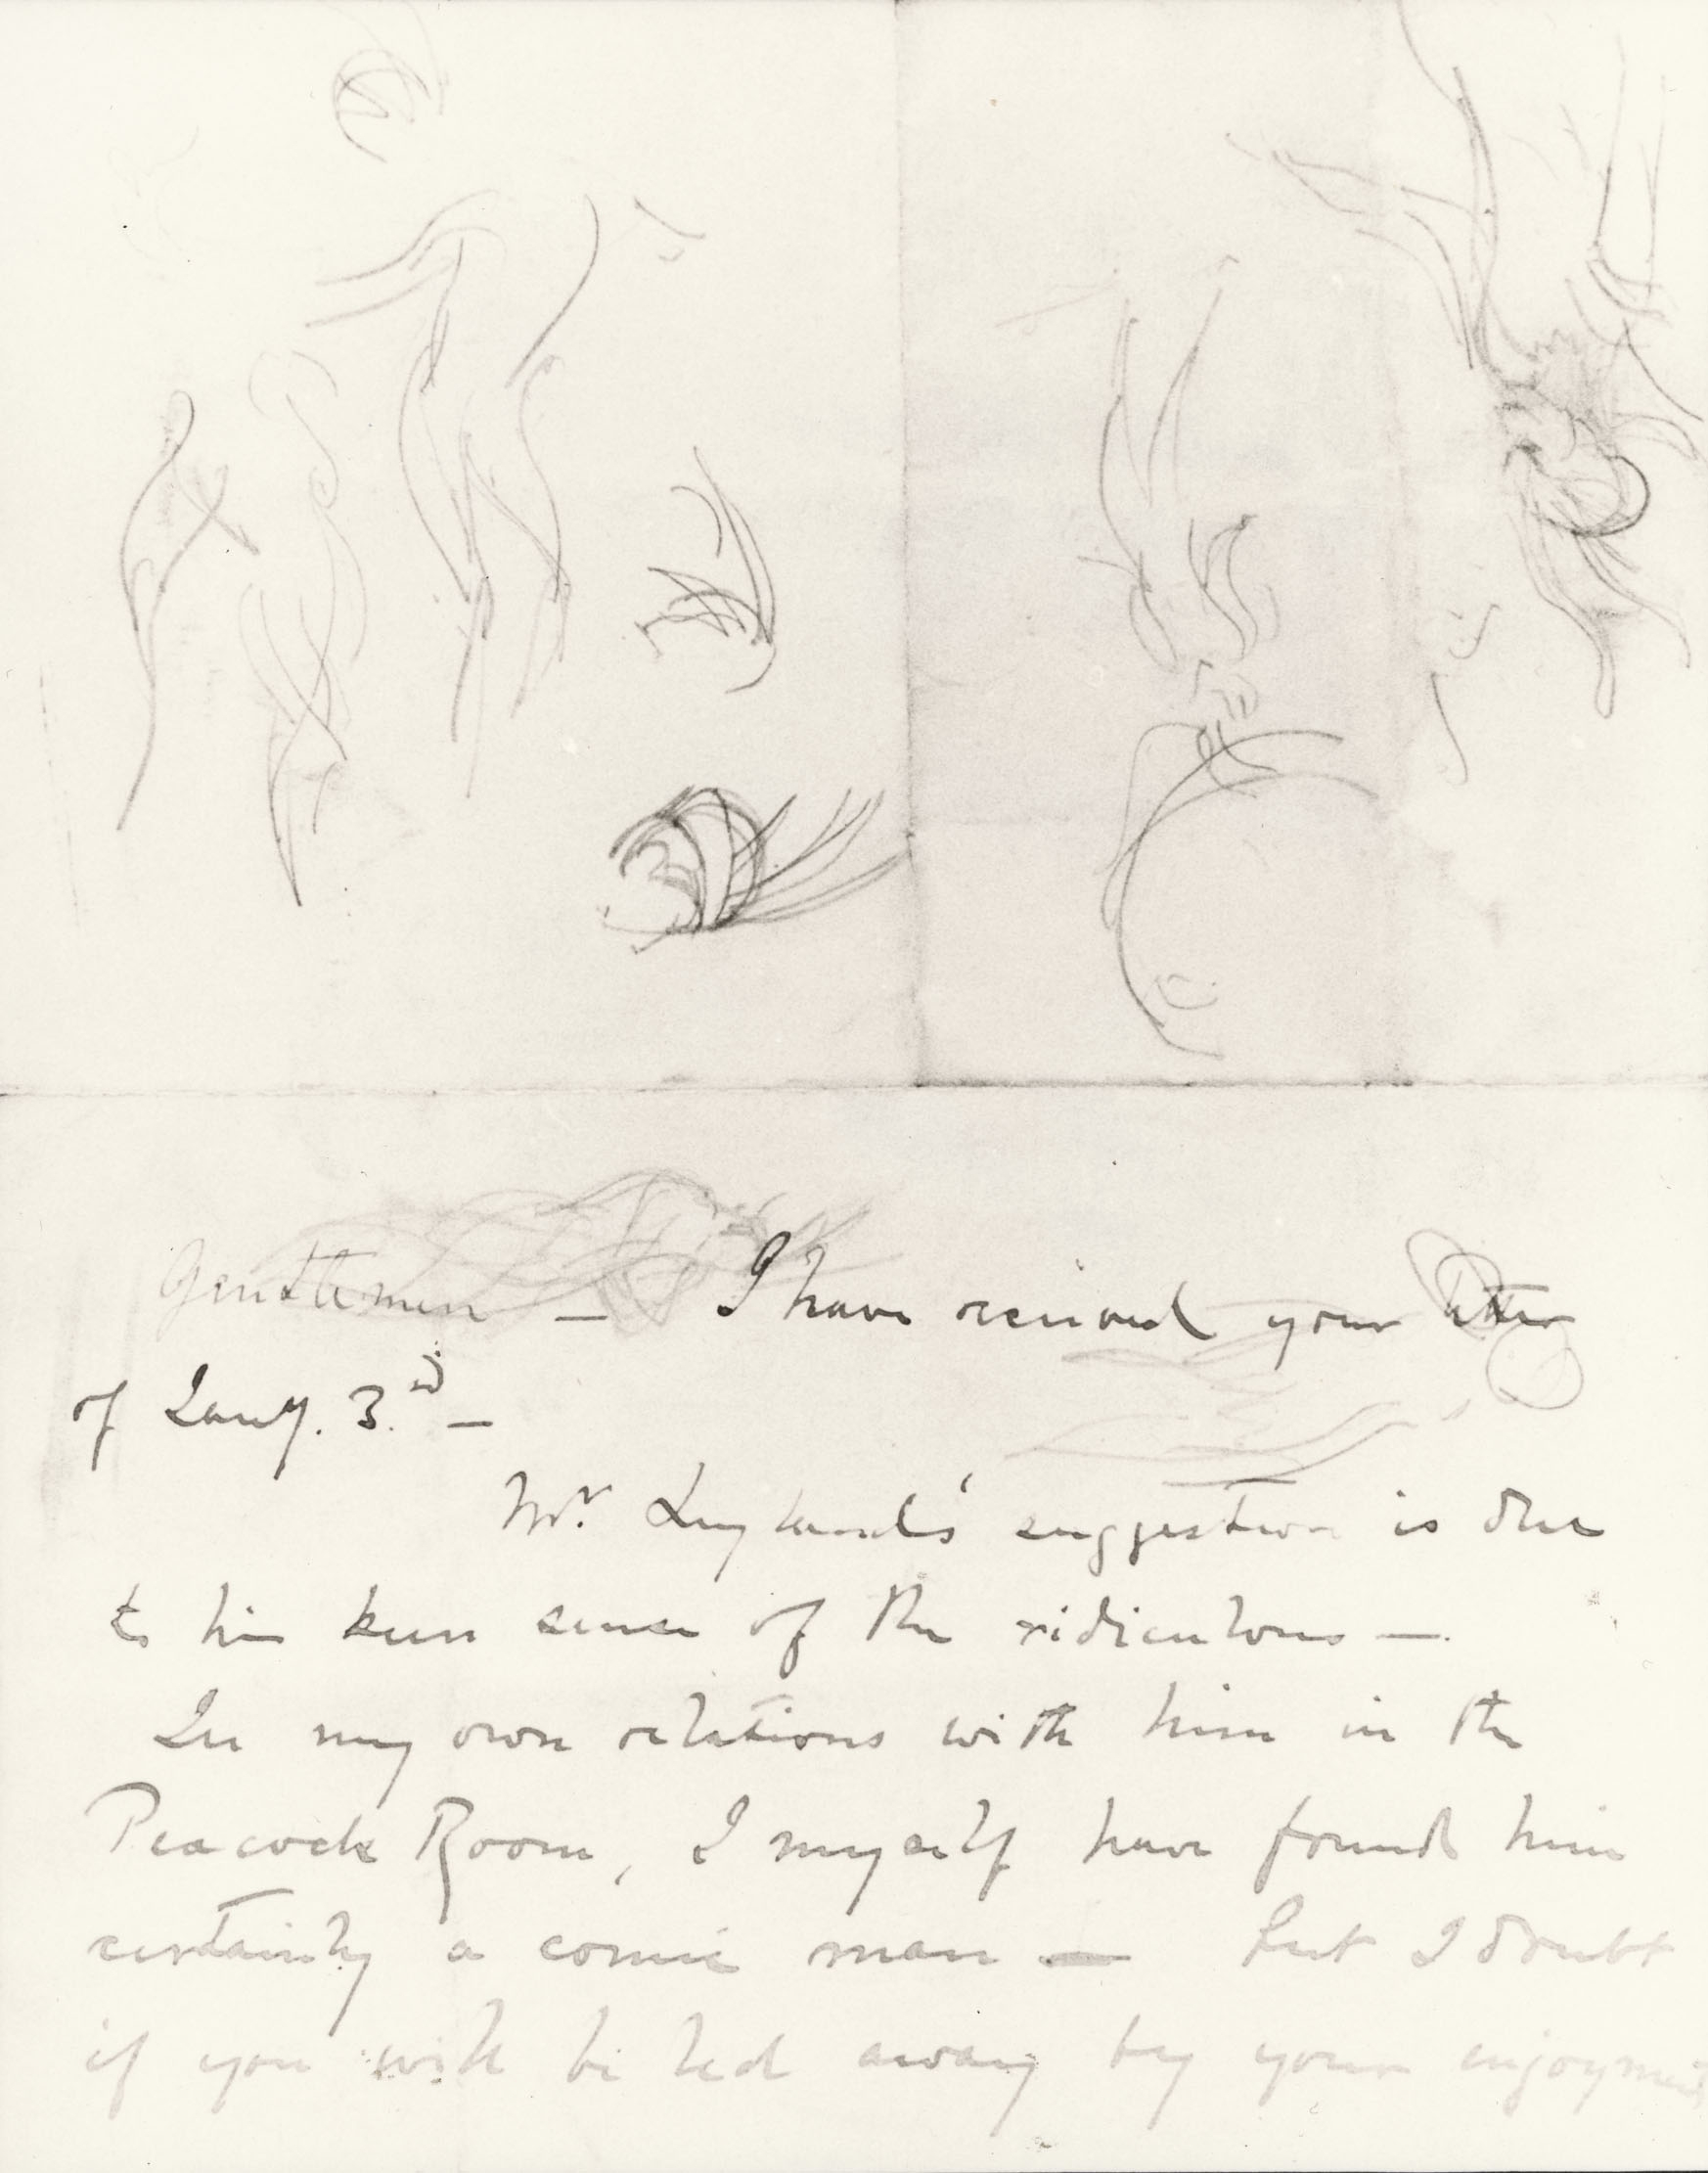 Gentlemen — I have received your letter
of Jany. 3.rd —
Mr. Leylands' suggestion is due
to his keen sense of the ridiculous —.
In my own relations with him in the
Peacock Room, I myself have found him
certainly a comic man — but I doubt
if you will be led away by your enjoyment